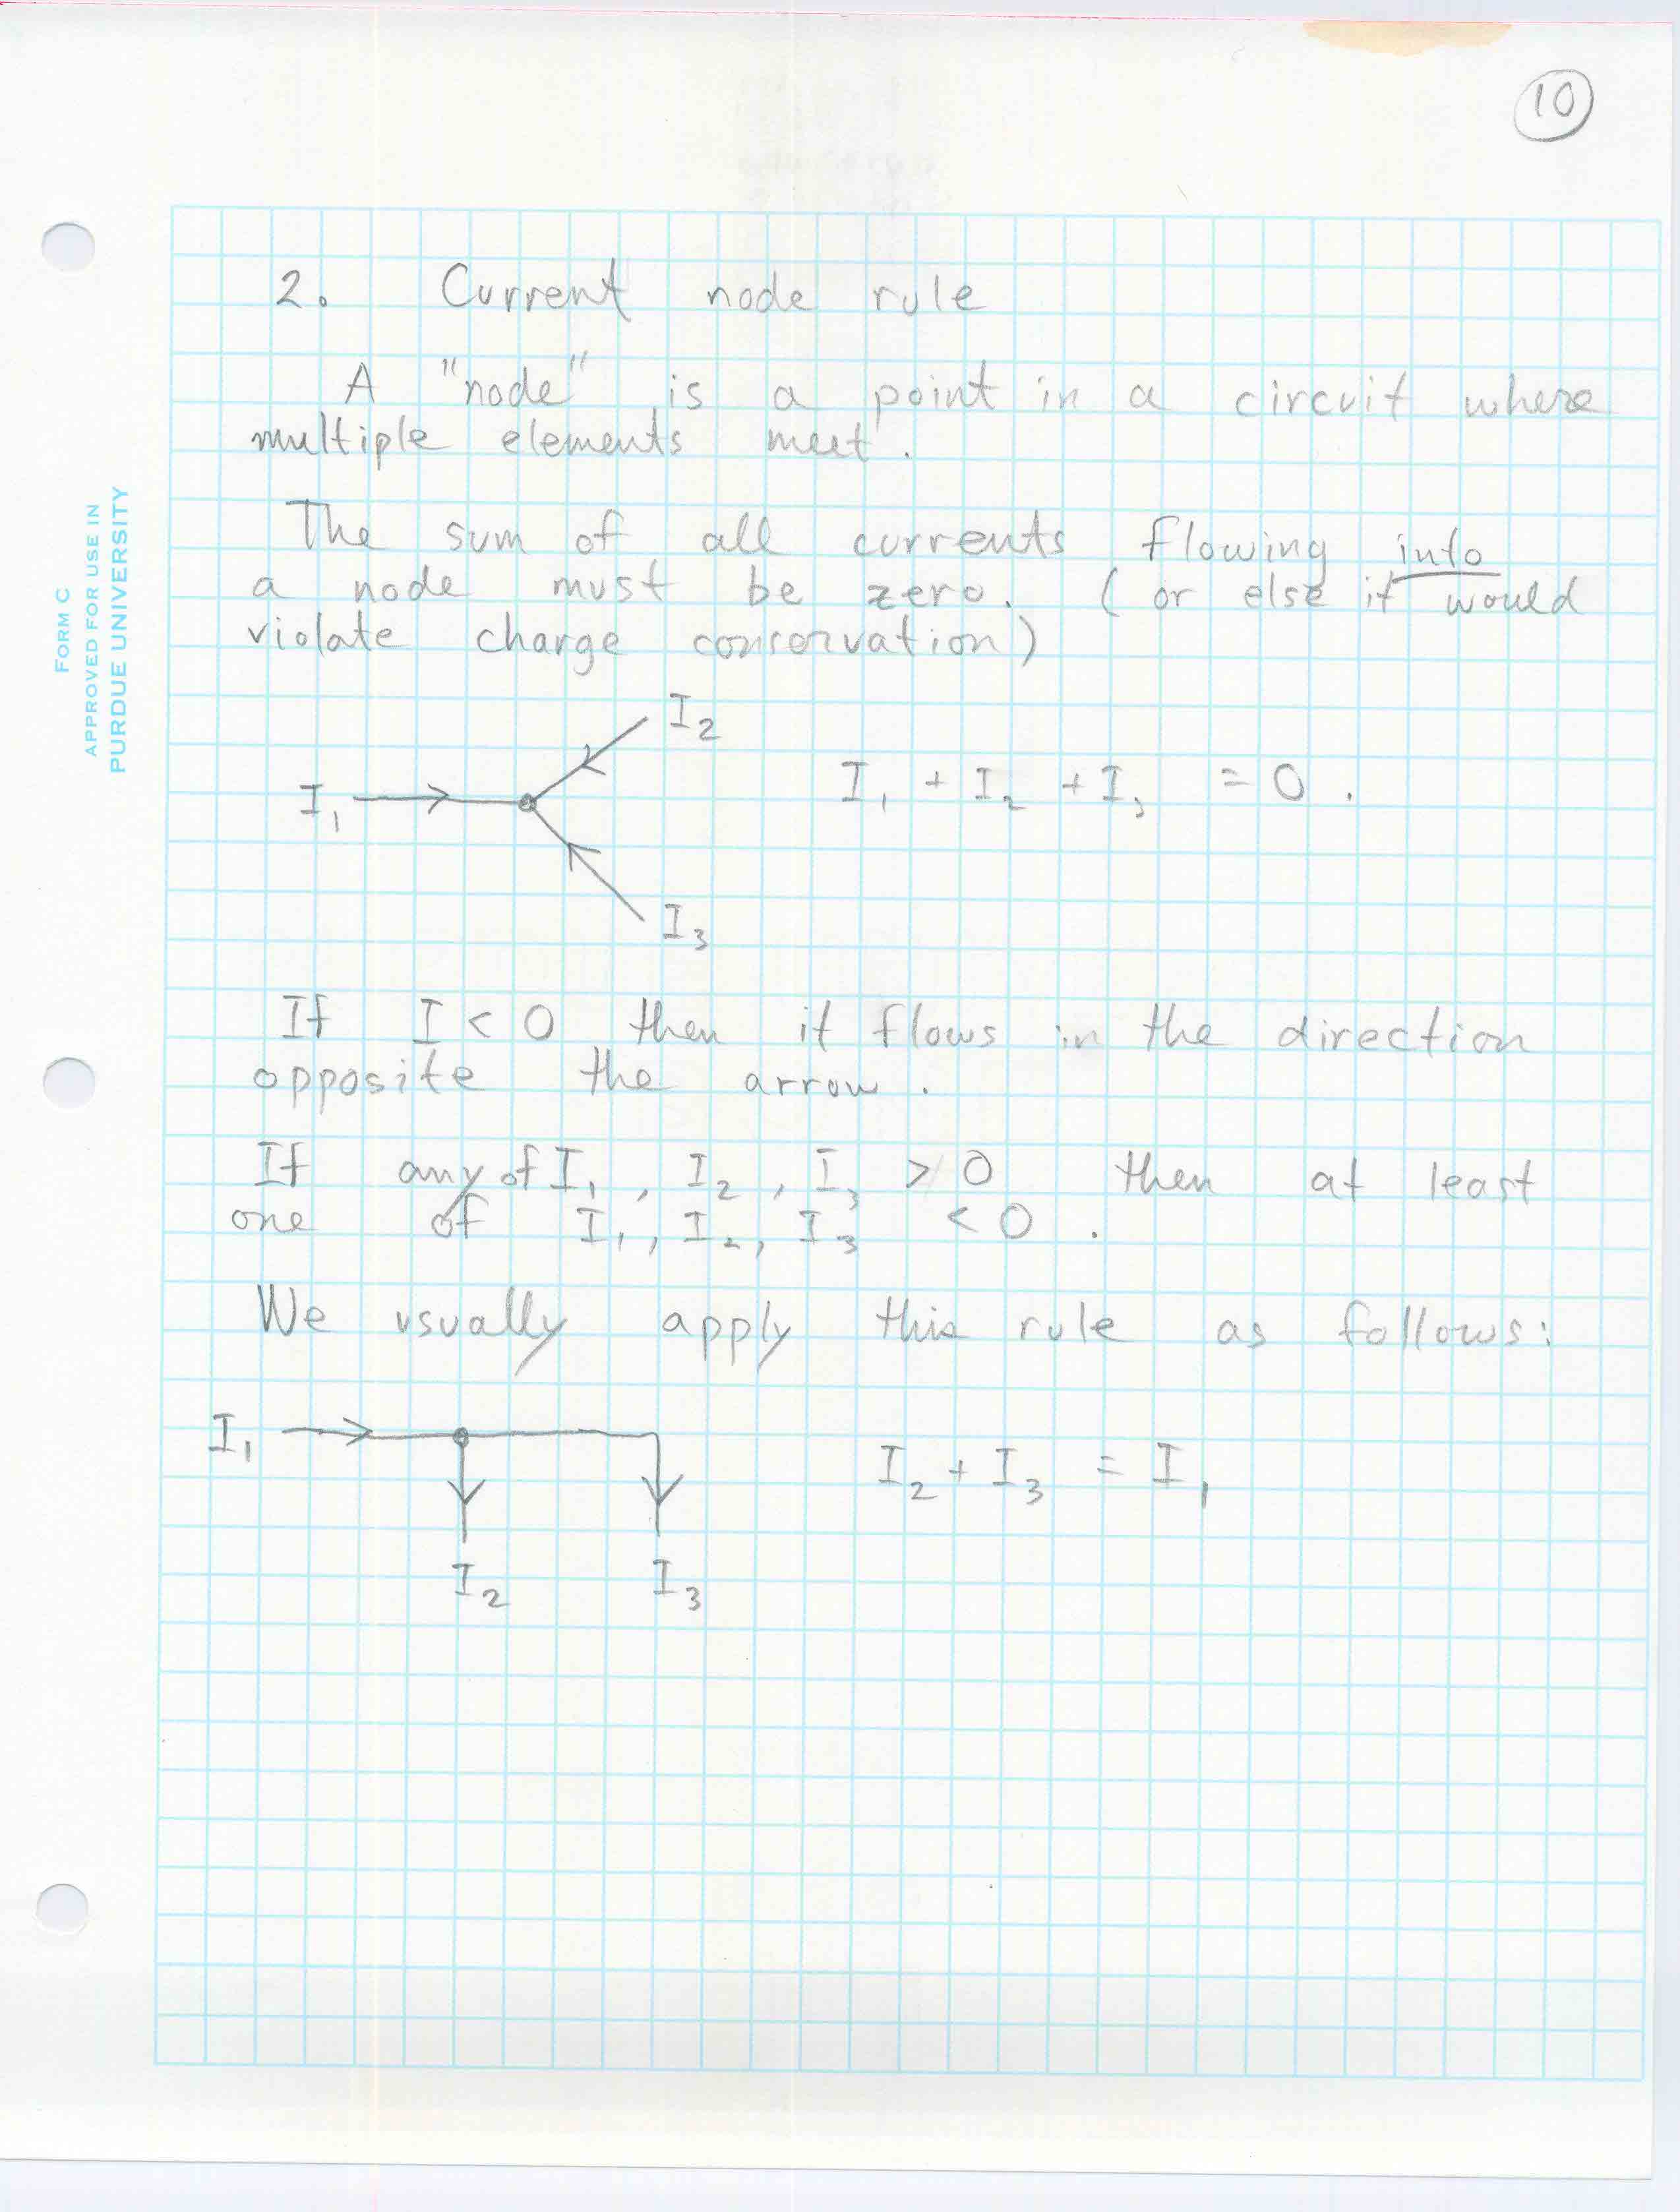 10
FORM C
APPROVED FOR USE IN
PURDUE UNIVERSITY
2. Current node rule
A "node" is a point in a circuit where
multiple elements meet.
The sum of all currents flowing into
a node must be zero. (or else it would
violate charge conservation)
I₂
I₁
I₁ + I₂ + I₃ = 0.
I₃
If I < 0 then it flows in the direction
opposite the arrow.
If any of I₁, I₂, I₃ > 0 then at least
one of I₁, I₂, I₃ < 0.
We usually apply this rule as follows:
I₁
I₂ + I₃ = I₁
I₂ I₃